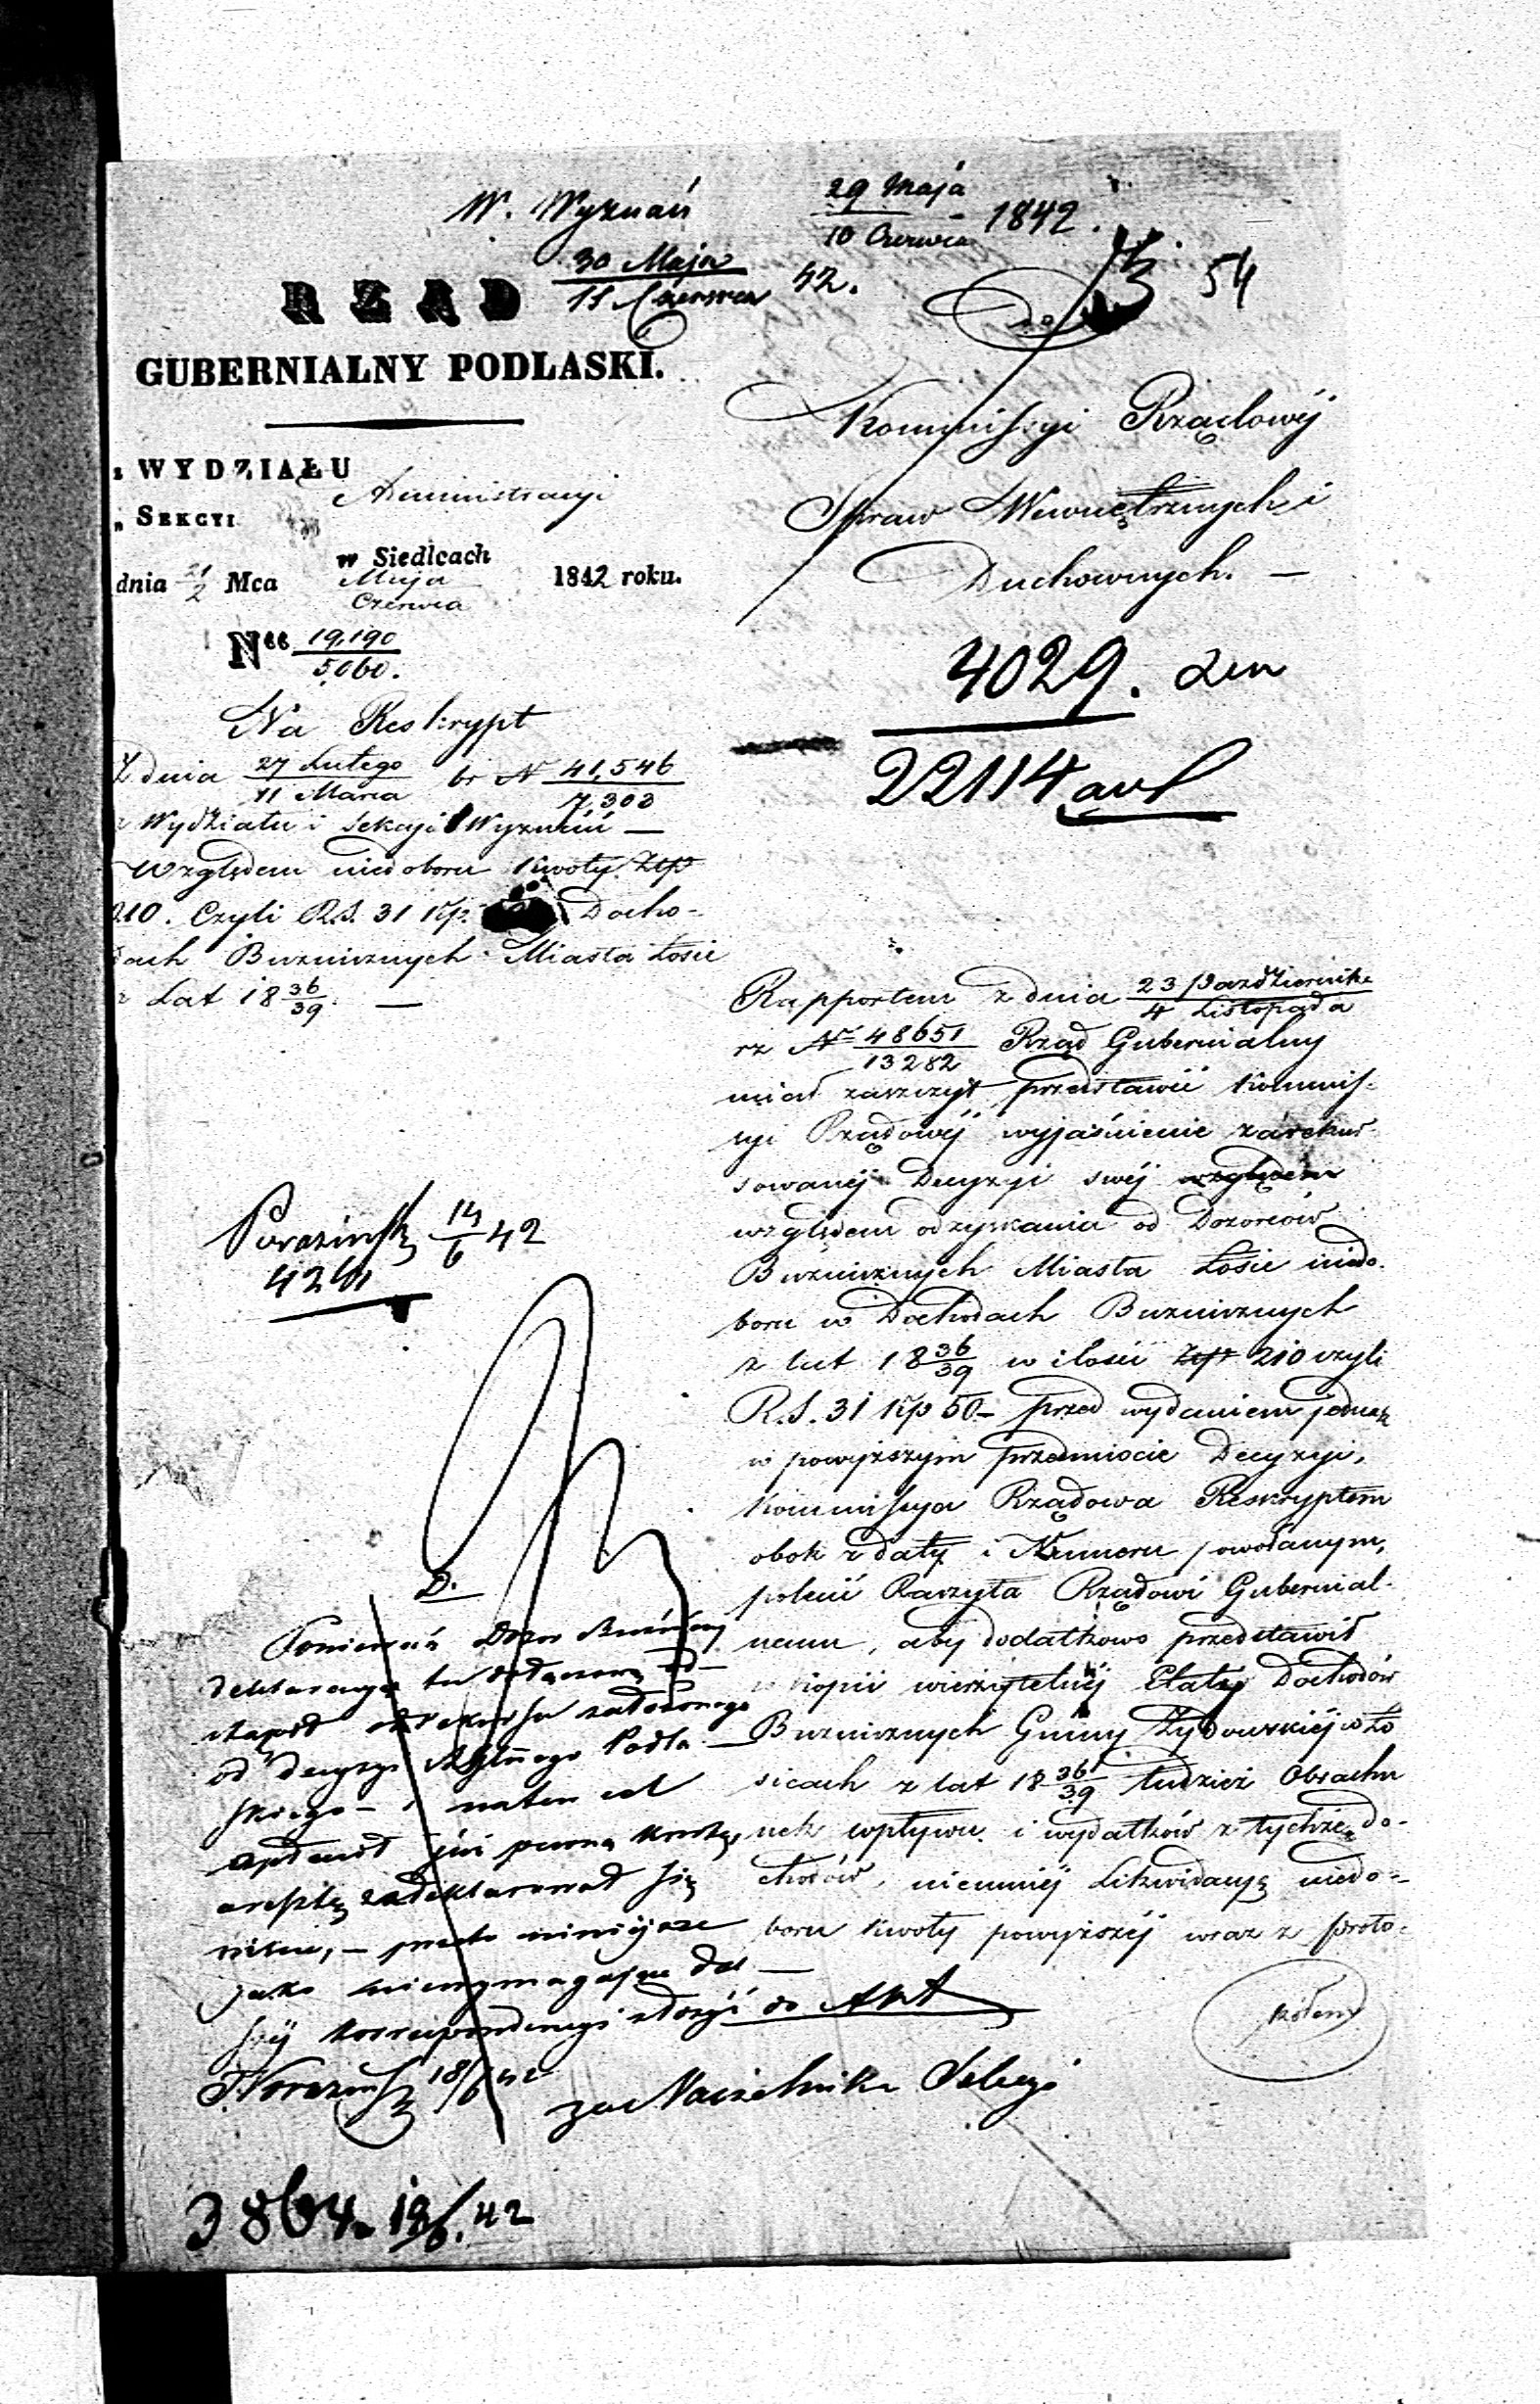 W. Wyznań
29 Maja
10 Czerwca 1842.
30 Maja
11 Czerwca 42.
54
RZĄD
GUBERNIALNY PODLASKI.
z WYDZIAŁU
Administracyi
„ SEKCYI
w Siedlcach
dnia 21/2 Mca Maja/Czerwca 1842 roku.
Nro 19,190
5,060.
Na Reskrypt
Z dnia 27 Lutego/11 Marca br N 41,546/7,303
z Wydziału i Sekcyi Wyznań —
względem niedoboru kwoty Złp
210. Czyli R.S. 31 kp. Docho-
dach Bużnicznych Miasta Łosic
z Lat 18 36/39. —
Do
Kommissyi Rządowéj
Spraw Wewnętrznych i
Duchownych. —
4029.
22114
Rapportem z dnia 23 Październik/4 Listopada
rz No 48651/13282 Rząd Gubernialny
miał zaszczyt przedstawić Kommis-
syi Rządowéj wyjaśnienie zarekur-
sowanéj Decyzyi swéj względem
względem odzyskania od Dozorców
Bużnicznych Miasta Łosic niedo-
boru w Dochodach Bużnicznych
z lat 18 36/39 w ilości Złp 210 czyli
R.S. 31 kp 50 – przed wydaniem jednak
w powyższym przedmiocie Decyzyi,
Kommissya Rządowa Reskryptem
obok z daty i Numeru powołanym,
polecić Raczyła Rządowi Gubernial-
nemu, aby dodatkowo przedstawił
w kopii wierzytelnéj Etaty Dochodów
Bużnicznych Gminy Żydowskiéj w Ło
sicach z lat 18 36/39 tudzież Obrachu
nek wpływu i wydatków z tychże do-
chodów, niemniéj Likwidacyę niedo-
boru kwoty powyższéj wraz z proto-
kółem
14/6 42
D.
Ponieważ Dozor Bużniczy
deklaracyą tu dołączoną od-
stąpił od rekursu założonego
od decyzyi Rządu Gubernialnego Podla-
skiego – i na ten cel
zapłacił już pewną kwotę,
resztę zadeklarował się
– przeto niniejsze
jako niewymagające dal-
széj korrespondencyi złożyć do Akt
18/6 42
za Naczelnika Sekcyi
3864. 19/6. 42